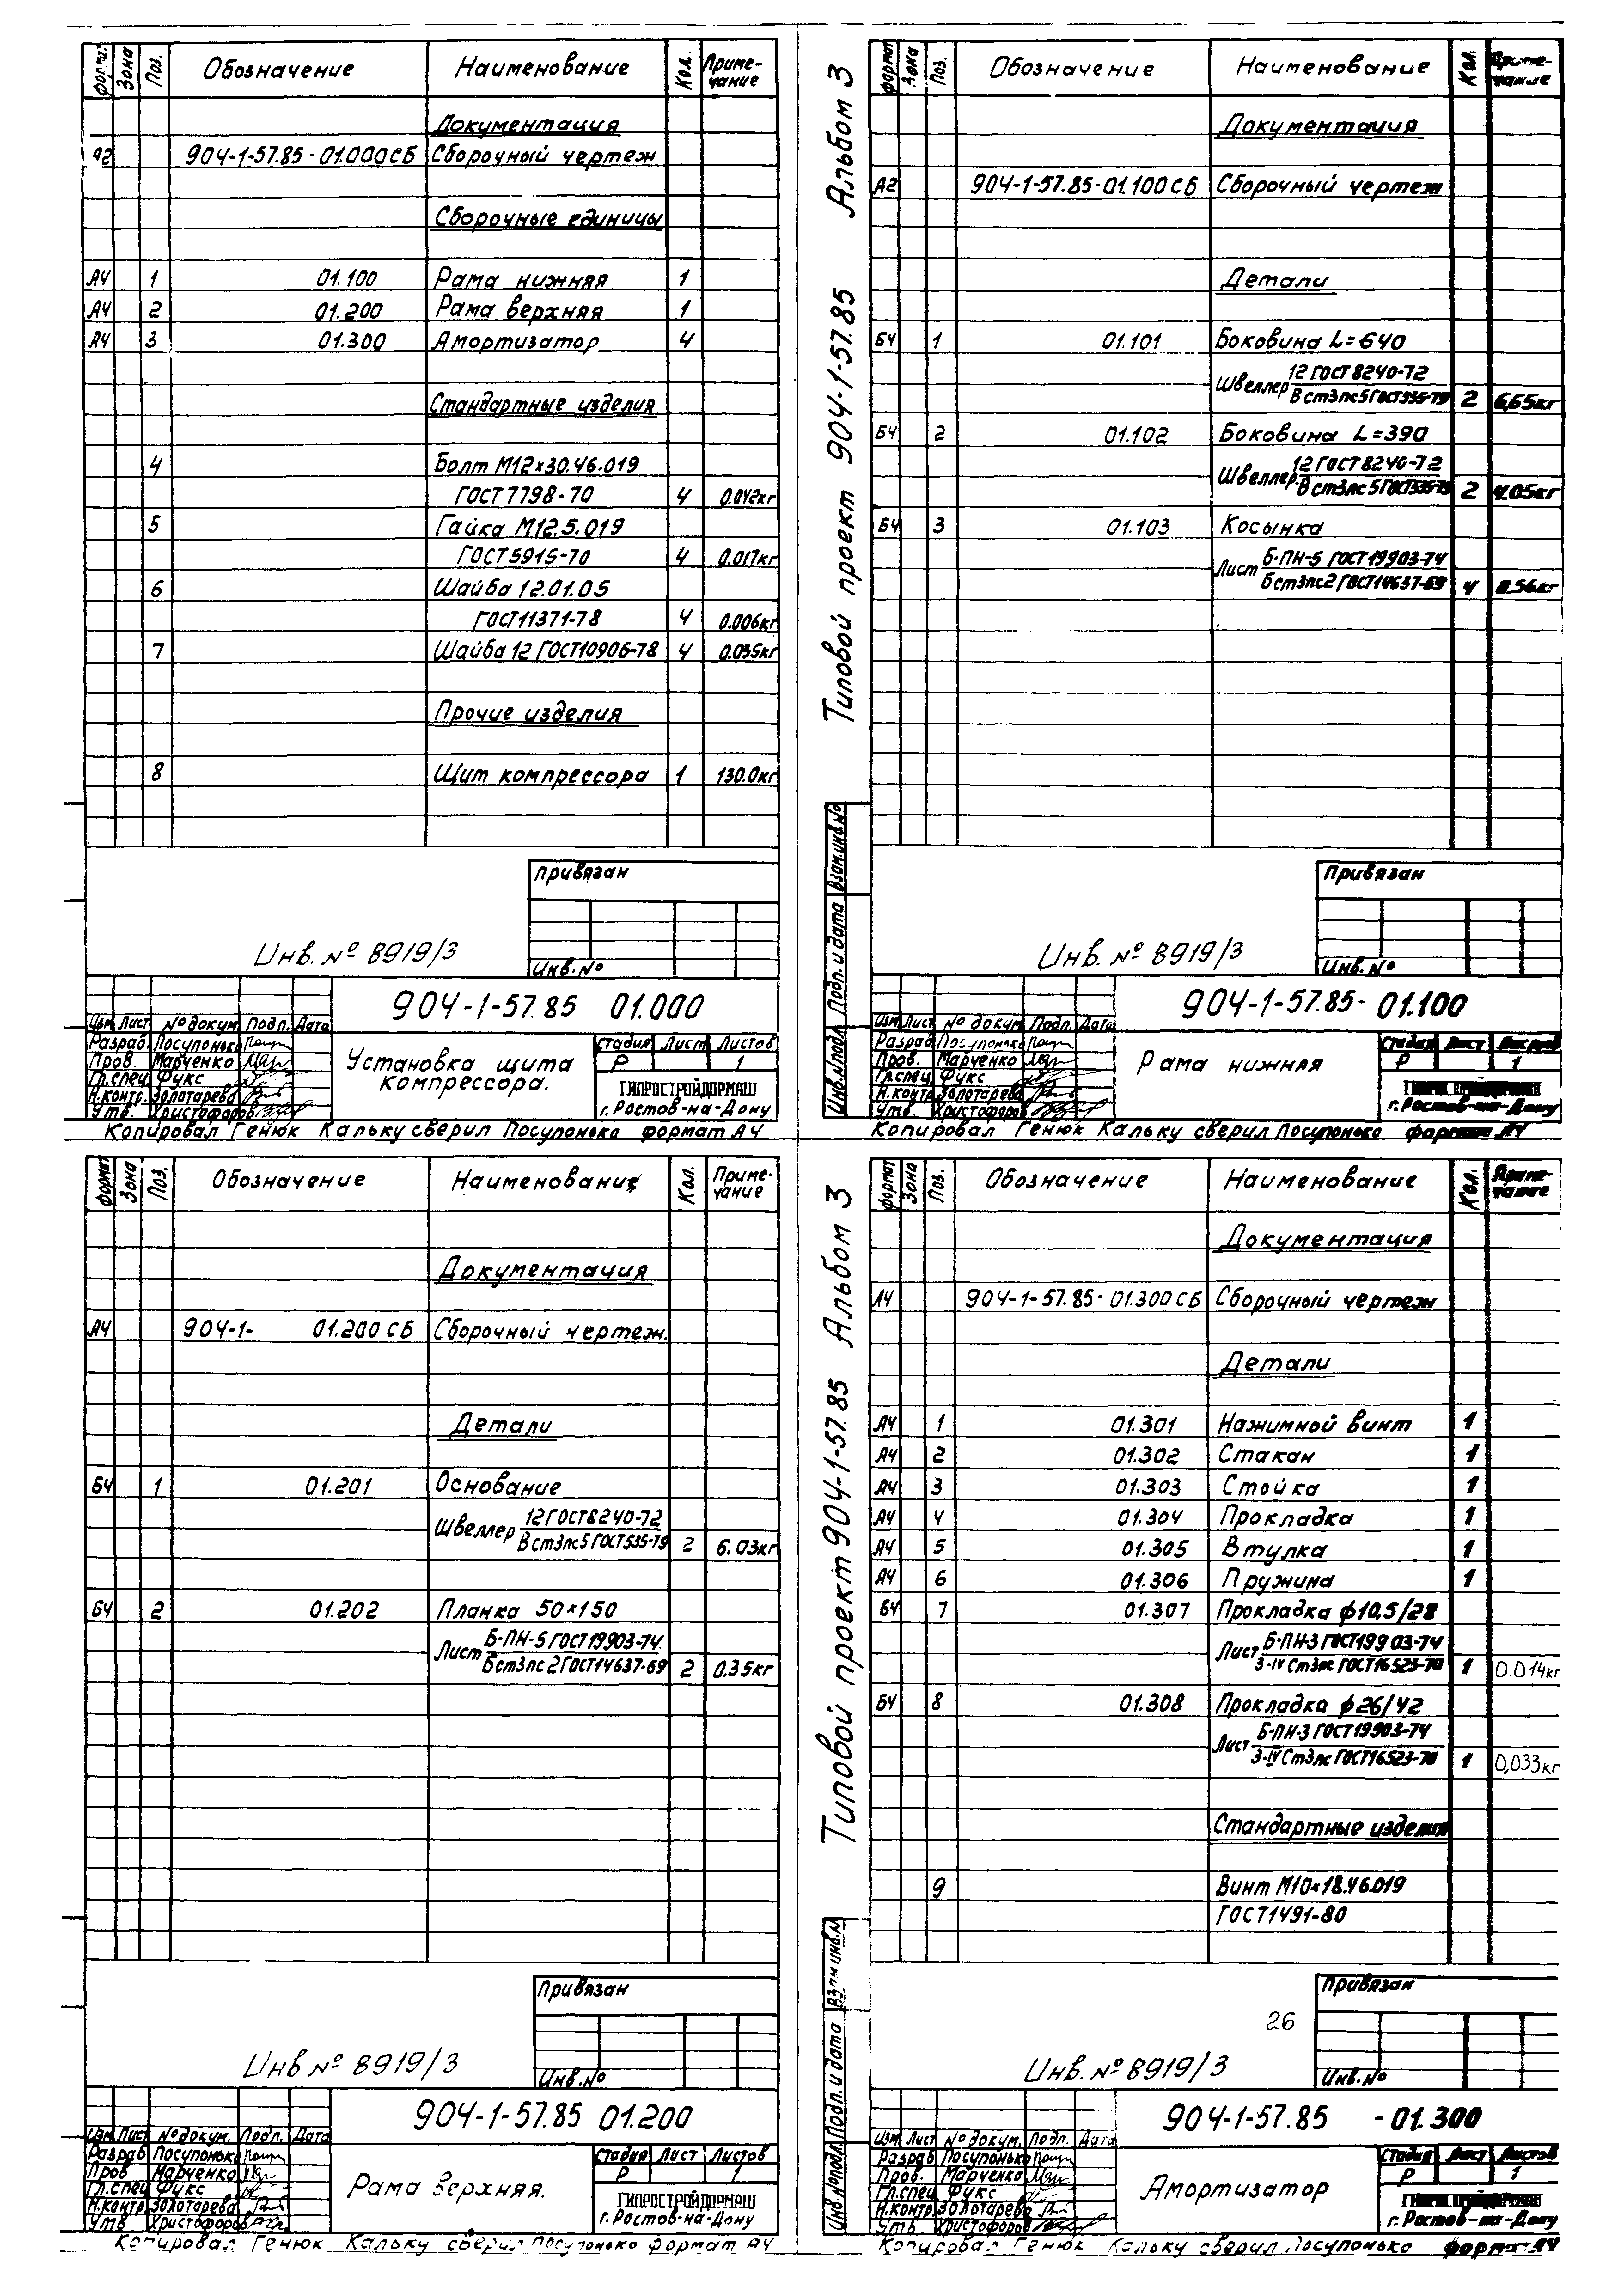 Формат Зона Поз. Обозначение Наименование Кол. Примечание
Документация
А2 904-1-57.85-01.000СБ Сборочный чертеж
Сборочные единицы
А4 1 01.100 Рама нижняя 1
А4 2 01.200 Рама верхняя 1
А4 3 01.300 Амортизатор 4
Стандартные изделия
4 Болт М12×30.46.019
ГОСТ 7798-70 4 0.042кг
5 Гайка М12.5.019
ГОСТ 5915-70 4 0.017кг
6 Шайба 12.01.05
ГОСТ 11371-78 4 0.006кг
7 Шайба 12 ГОСТ10906-78 4 0.035кг
Прочие изделия
8 Щит компрессора 1 130.0кг
Привязан
Инв. №
Инв. № 8919/3
904-1-57.85 01.000
Изм. Лист № докум. Подп. Дата
Разраб. Посупонько
Пров. Марченко
Гл.спец. Фукс
Н.контр. Золотарева
Утв. Христофоров
Установка щита
компрессора.
Стадия Лист Листов
Р 1
ГИПРОСТРОЙДОРМАШ
г. Ростов-на-Дону
Копировал Генюк Кальку сверил Посупонько формат А4
Типовой проект 904-1-57.85 Альбом 3
Формат Зона Поз. Обозначение Наименование Кол. Примечание
Документация
А2 904-1-57.85-01.100СБ Сборочный чертеж
Детали
БЧ 1 01.101 Боковина L=640
Швеллер 12 ГОСТ 8240-72
Вст3пс5 ГОСТ535-79 2 6,65кг
БЧ 2 01.102 Боковина L=390
Швеллер 12 ГОСТ 8240-72
Вст3пс5 ГОСТ535-79 2 4.05кг
БЧ 3 01.103 Косынка
Лист Б-ПН-5 ГОСТ19903-74
Бст3пс2 ГОСТ14637-69 4 0.56кг
Инв.№подл. Подп. и дата Взам.инв.№
Привязан
Инв. №
Инв. № 8919/3
904-1-57.85- 01.100
Изм. Лист № докум. Подп. Дата
Разраб. Посупонько
Пров. Марченко
Гл.спец. Фукс
Н.контр. Золотарева
Утв. Христофоров
Рама нижняя
Стадия Лист Листов
Р 1
ГИПРОСТРОЙДОРМАШ
г. Ростов-на-Дону
Копировал Генюк Кальку сверил Посупонько формат А4
Формат Зона Поз. Обозначение Наименование Кол. Примечание
Документация
А4 904-1- 01.200 СБ Сборочный чертеж.
Детали
БЧ 1 01.201 Основание
Швеллер 12 ГОСТ8240-72
Вст3пс5 ГОСТ535-79 2 6.03кг
БЧ 2 01.202 Планка 50×150
Лист Б-ПН-5 ГОСТ 19903-74
Бст3пс2 ГОСТ14637-69 2 0.35кг
Привязан
Инв. №
Инв № 8919/3
904-1-57.85 01.200
Изм Лист № докум. Подп. Дата
Разраб Посупонько
Пров Марченко
Гл.спец Фукс
Н.контр. Золотарева
Утв Христофоров
Рама верхняя.
Стадия Лист Листов
Р 1
ГИПРОСТРОЙДОРМАШ
г. Ростов-на-Дону
Копировал Генюк Кальку сверил Посупонько формат А4
Типовой проект 904-1-57.85 Альбом 3
Формат Зона Поз. Обозначение Наименование Кол. Примечание
Документация
А4 904-1-57.85- 01.300 СБ Сборочный чертеж
Детали
А4 1 01.301 Нажимной винт 1
А4 2 01.302 Стакан 1
А4 3 01.303 Стойка 1
А4 4 01.304 Прокладка 1
А4 5 01.305 Втулка 1
А4 6 01.306 Пружина 1
БЧ 7 01.307 Прокладка ф10,5/28
Лист Б-ПН-3 ГОСТ19903-74
3-IV Ст3пс ГОСТ16523-70 1 0.014кг
БЧ 8 01.308 Прокладка ф26/42
Лист Б-ПН-3 ГОСТ19903-74
3-IV Ст3пс ГОСТ16523-70 1 0,033кг
Стандартные изделия
9 Винт М10×18.46.019
ГОСТ1491-80
Инв.№подл. Подп. и дата Взам инв.№
Привязан
Инв. №
26
Инв. № 8919/3
904-1-57.85 -01.300
Изм Лист № докум. Подп. Дата
Разраб Посупонько
Пров. Марченко
Гл.спец Фукс
Н.контр. Золотарева
Утв. Христофоров
Амортизатор
Стадия Лист Листов
Р 1
ГИПРОСТРОЙДОРМАШ
г. Ростов-на-Дону
Копировал Генюк Кальку сверил Посупонько формат А4